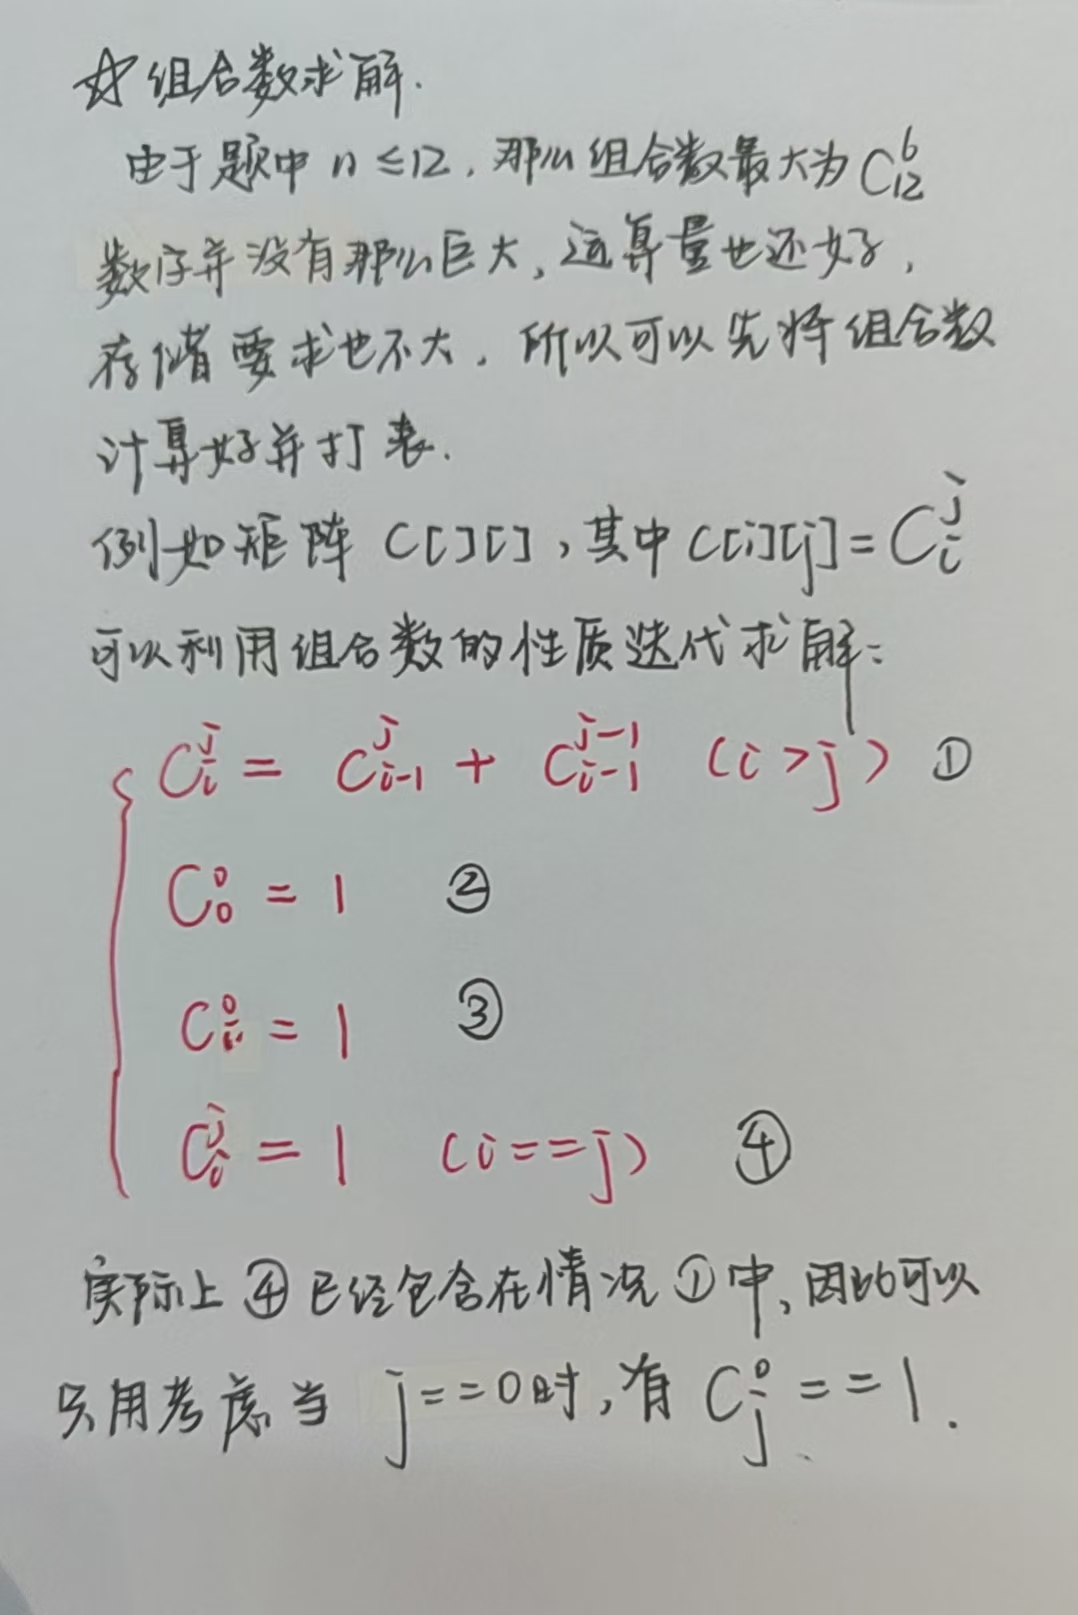 ☆组合数求解.
由于题中 n≤12, 那么组合数最大为 C₁₂⁶
数字并没有那么巨大, 运算量也还好,
存储要求也不大, 所以可以先将组合数
计算好并打表.
例如矩阵 C[][], 其中 C[i][j] = C_i^j
可以利用组合数的性质迭代求解:
C_i^j = C_{i-1}^j + C_{i-1}^{j-1} (i>j) ①
C_0^0 = 1 ②
C_i^0 = 1 ③
C_i^j = 1 (i==j) ④
实际上④已经包含在情况①中, 因此可以
只用考虑当 j==0时, 有 C_j^0 == 1.